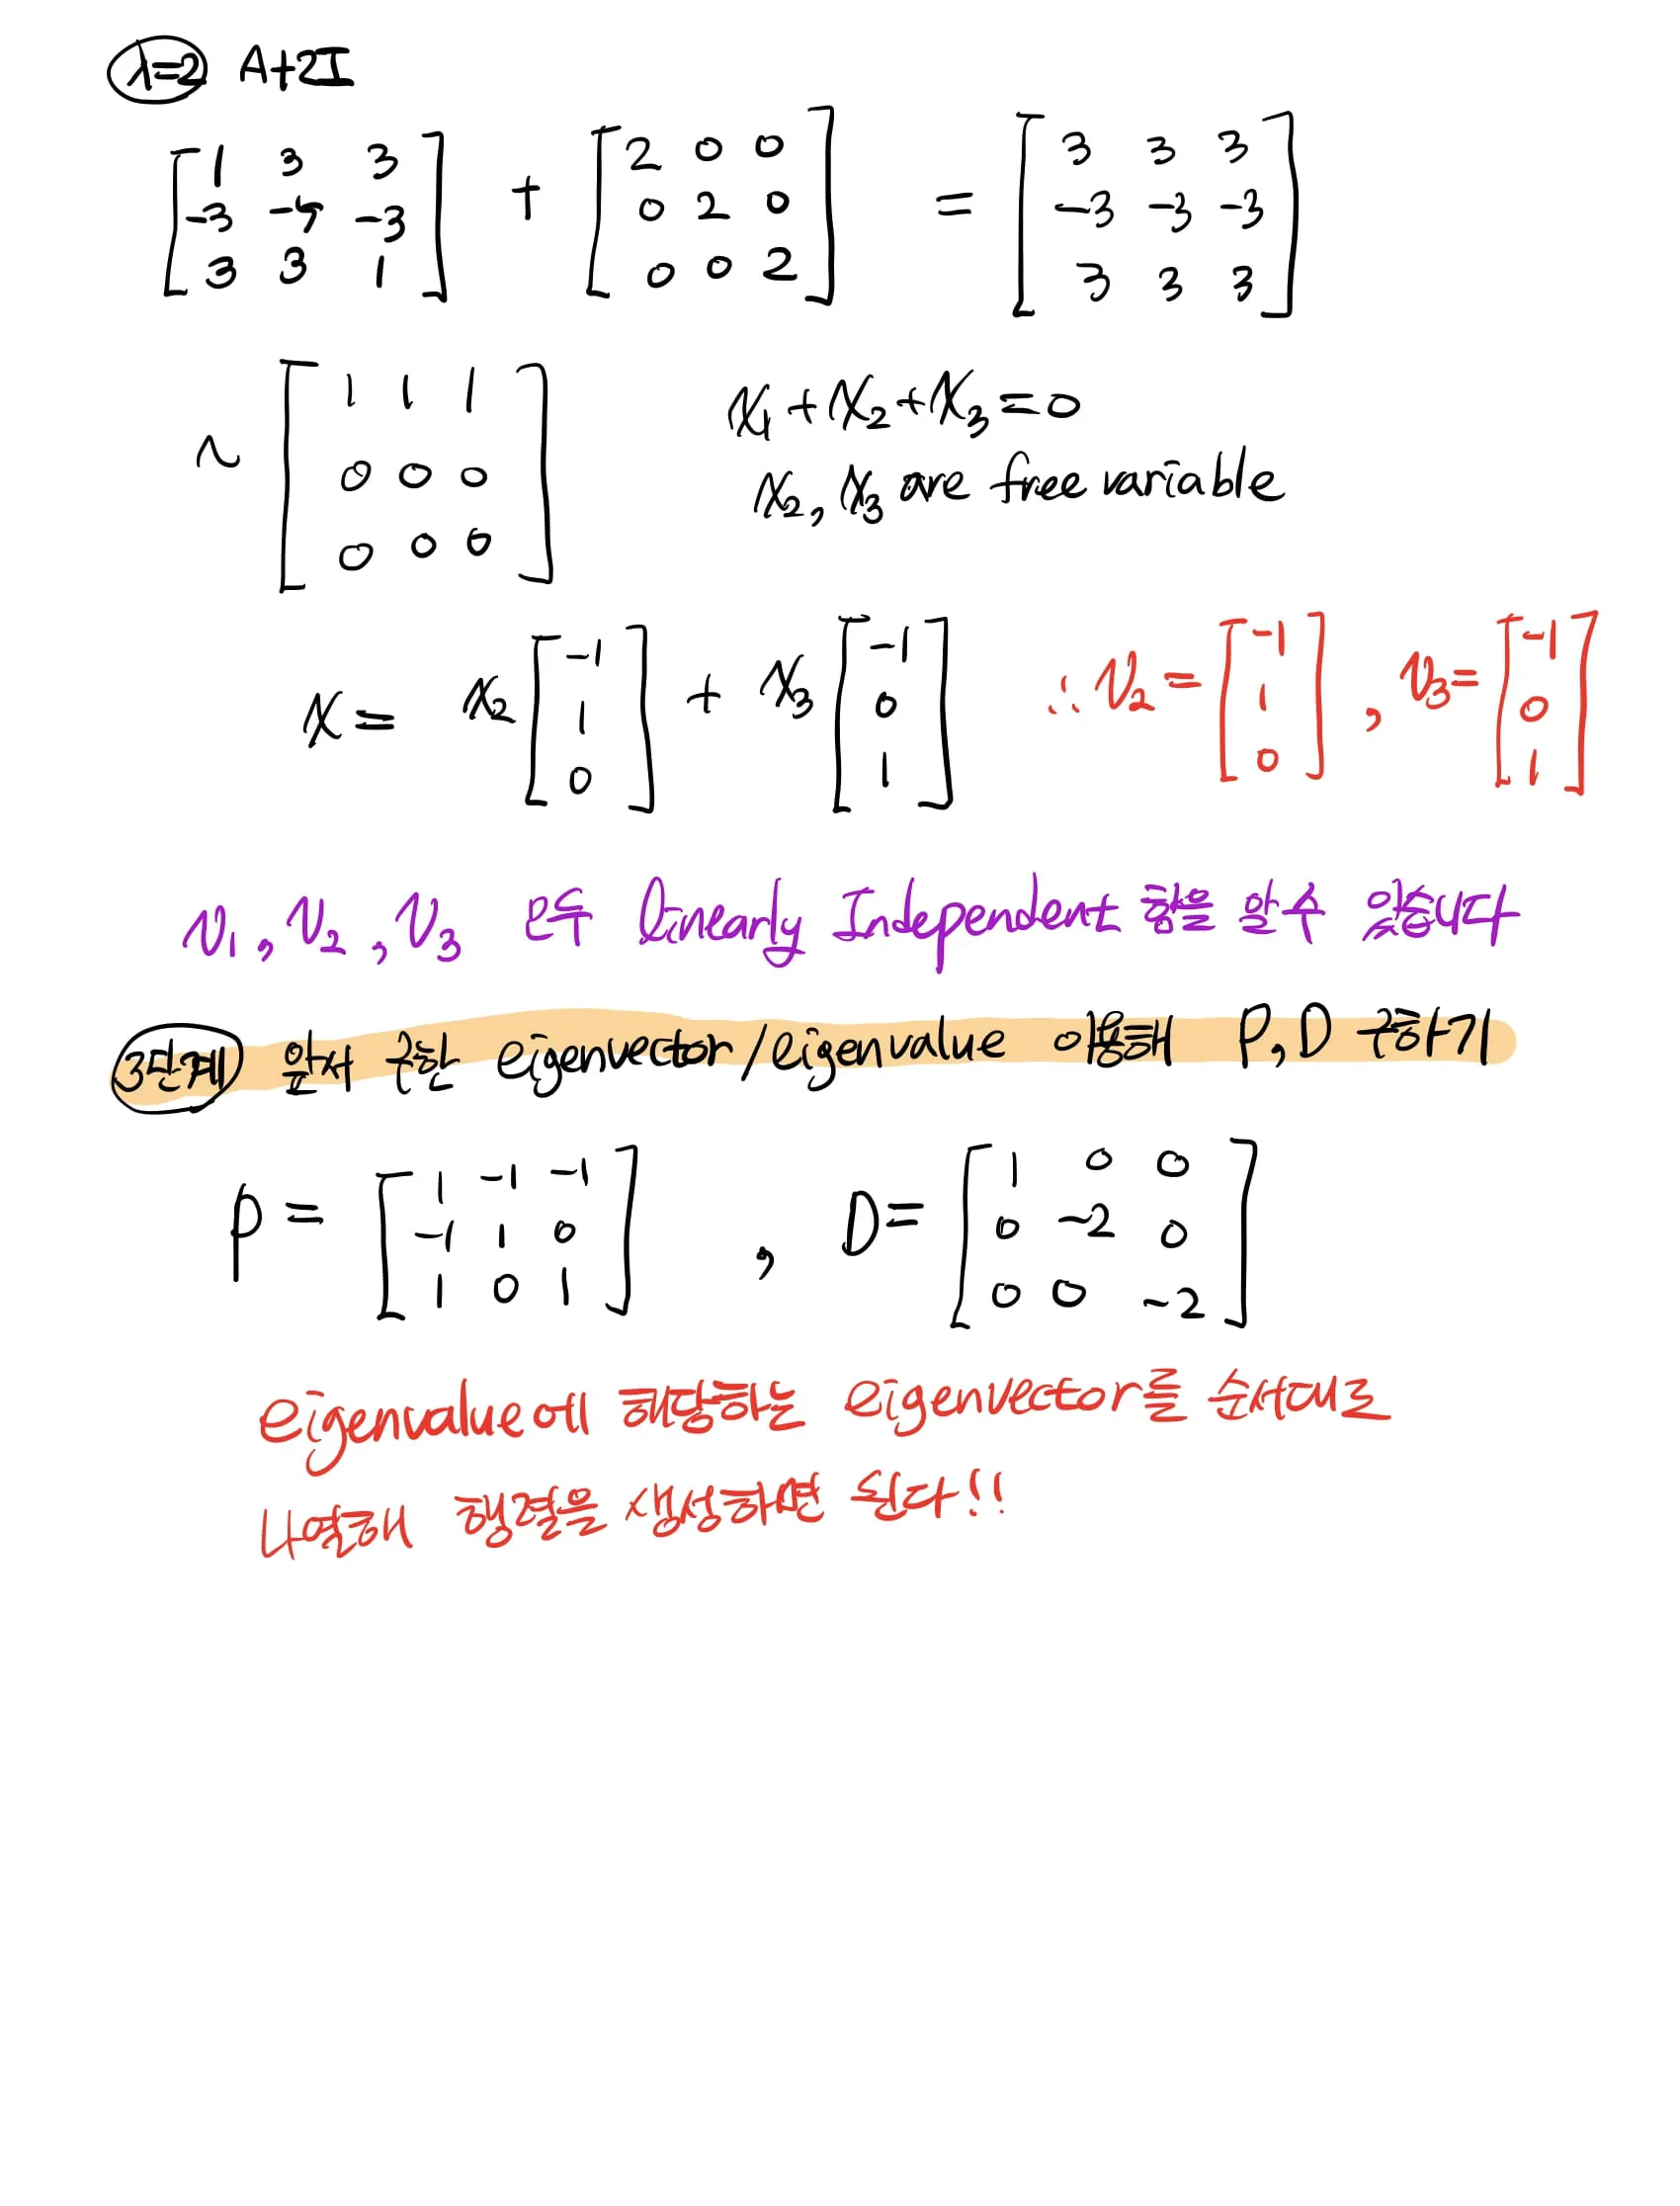 λ=2 A+2I
[1 3 3; -3 -5 -3; 3 3 1] + [2 0 0; 0 2 0; 0 0 2] = [3 3 3; -3 -3 -3; 3 3 3]
~ [1 1 1; 0 0 0; 0 0 0] x₁+x₂+x₃=0
x₂, x₃ are free variable
x= x₂[-1; 1; 0] + x₃[-1; 0; 1] ∴ v₂=[-1; 1; 0], v₃=[-1; 0; 1]
v₁, v₂, v₃ 모두 linearly Independent 함을 알 수 있습니다
3단계 앞서 구한 eigenvector/eigenvalue 이용해 P, D 구하기
P= [1 -1 -1; -1 1 0; 1 0 1], D= [1 0 0; 0 -2 0; 0 0 -2]
eigenvalue에 해당하는 eigenvector를 순서대로
나열해 행렬을 생성하면 된다!!